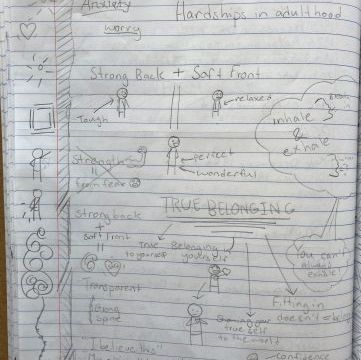 Anxiety
Hardships in adulthood
worry
Strong Back + Soft Front
Tough
relaxed
inhale
&
exhale
Strength
perfect
wonderful
from fear
TRUE BELONGING
Strong back
+
Soft Front
True
to yourself
Belonging
yourself
You can't
always
exhale!
Transparent
Strong
Spine
Fitting in
doesn't = belong
Showing your
true self
to the world
"I believe this"
Confidence